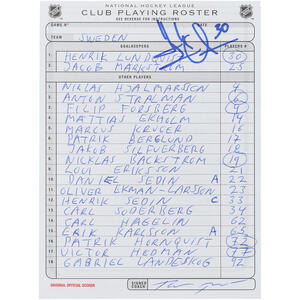 NATIONAL HOCKEY LEAGUE
CLUB PLAYING ROSTER
SEE REVERSE FOR INSTRUCTIONS
GAME # DATE
TEAM SWEDEN 30
GOALKEEPERS PLAYERS #
1. HENRIK LUNDQVIST 30
2. JACOB MARKSTROM 25
OTHER PLAYERS
1. NIKLAS HJALMARSSON 4
2. ANTON STRALMAN 6
3. FILIP FORSBERG 9
4. MATTIAS EKHOLM 14
5. MARCUS KRUGER 16
6. PATRIK BERGLUND 17
7. JAKOB SILFVERBERG 18
8. NICKLAS BACKSTROM 19
9. LOUI ERIKSSON 21
10. DANIEL SEDIN A 22
11. OLIVER EKMAN-LARSSON 23
12. HENRIK SEDIN C 33
13. CARL SODERBERG 34
14. CARL HAGELIN 62
15. ERIK KARLSSON A 65
16. PATRIK HORNQVIST 72
17. VICTOR HEDMAN 77
18. GABRIEL LANDESKOG 92
ORIGINAL OFFICIAL SCORER
SIGNED COACH